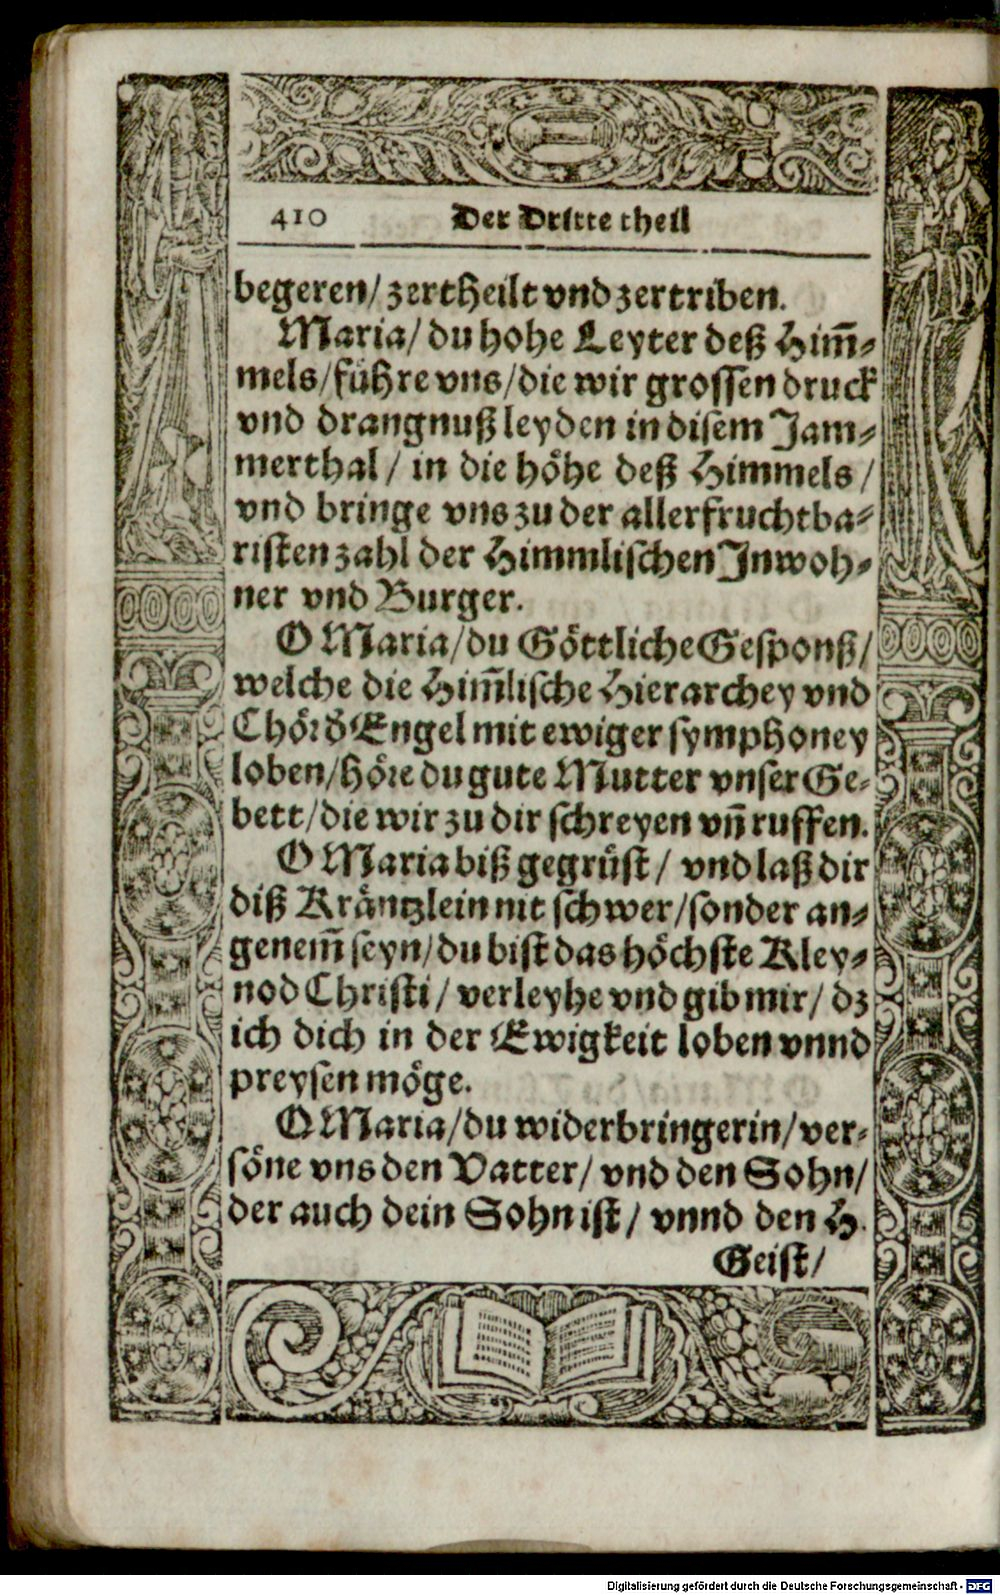 410 Der Dritte theil
begeren/ zertheilt vnd zertriben.
Maria/ du hohe Leyter deß Him̃⸗
mels/ führe vns/ die wir grossen druck
vnd drangnuß leyden in disem Jam⸗
merthal/ in die höhe deß Himmels/
vnd bringe vns zu der allerfruchtba⸗
risten zahl der Himmlischen Jnwoh⸗
ner vnd Burger.
O Maria/ du Göttliche Gesponß/
welche die Him̃lische Hierarchey vnd
Chör d̕ Engel mit ewiger symphoney
loben/ höre du gute Mutter vnser Ge⸗
bett/ die wir zu dir schreyen vñ ruffen.
O Maria biß gegrüst/ vnd laß dir
diß Kräntzlein nit schwer/ sonder an⸗
genem̃ seyn/ du bist das höchste Kley⸗
nod Christi/ verleyhe vnd gib mir/ dz
ich dich in der Ewigkeit loben vnnd
preysen möge.
O Maria/ du widerbringerin/ ver⸗
söne vns den Vatter/ vnd den Sohn/
der auch dein Sohn ist/ vnnd den H.
Geist/
Digitalisierung gefördert durch die Deutsche Forschungsgemeinschaft - DFG